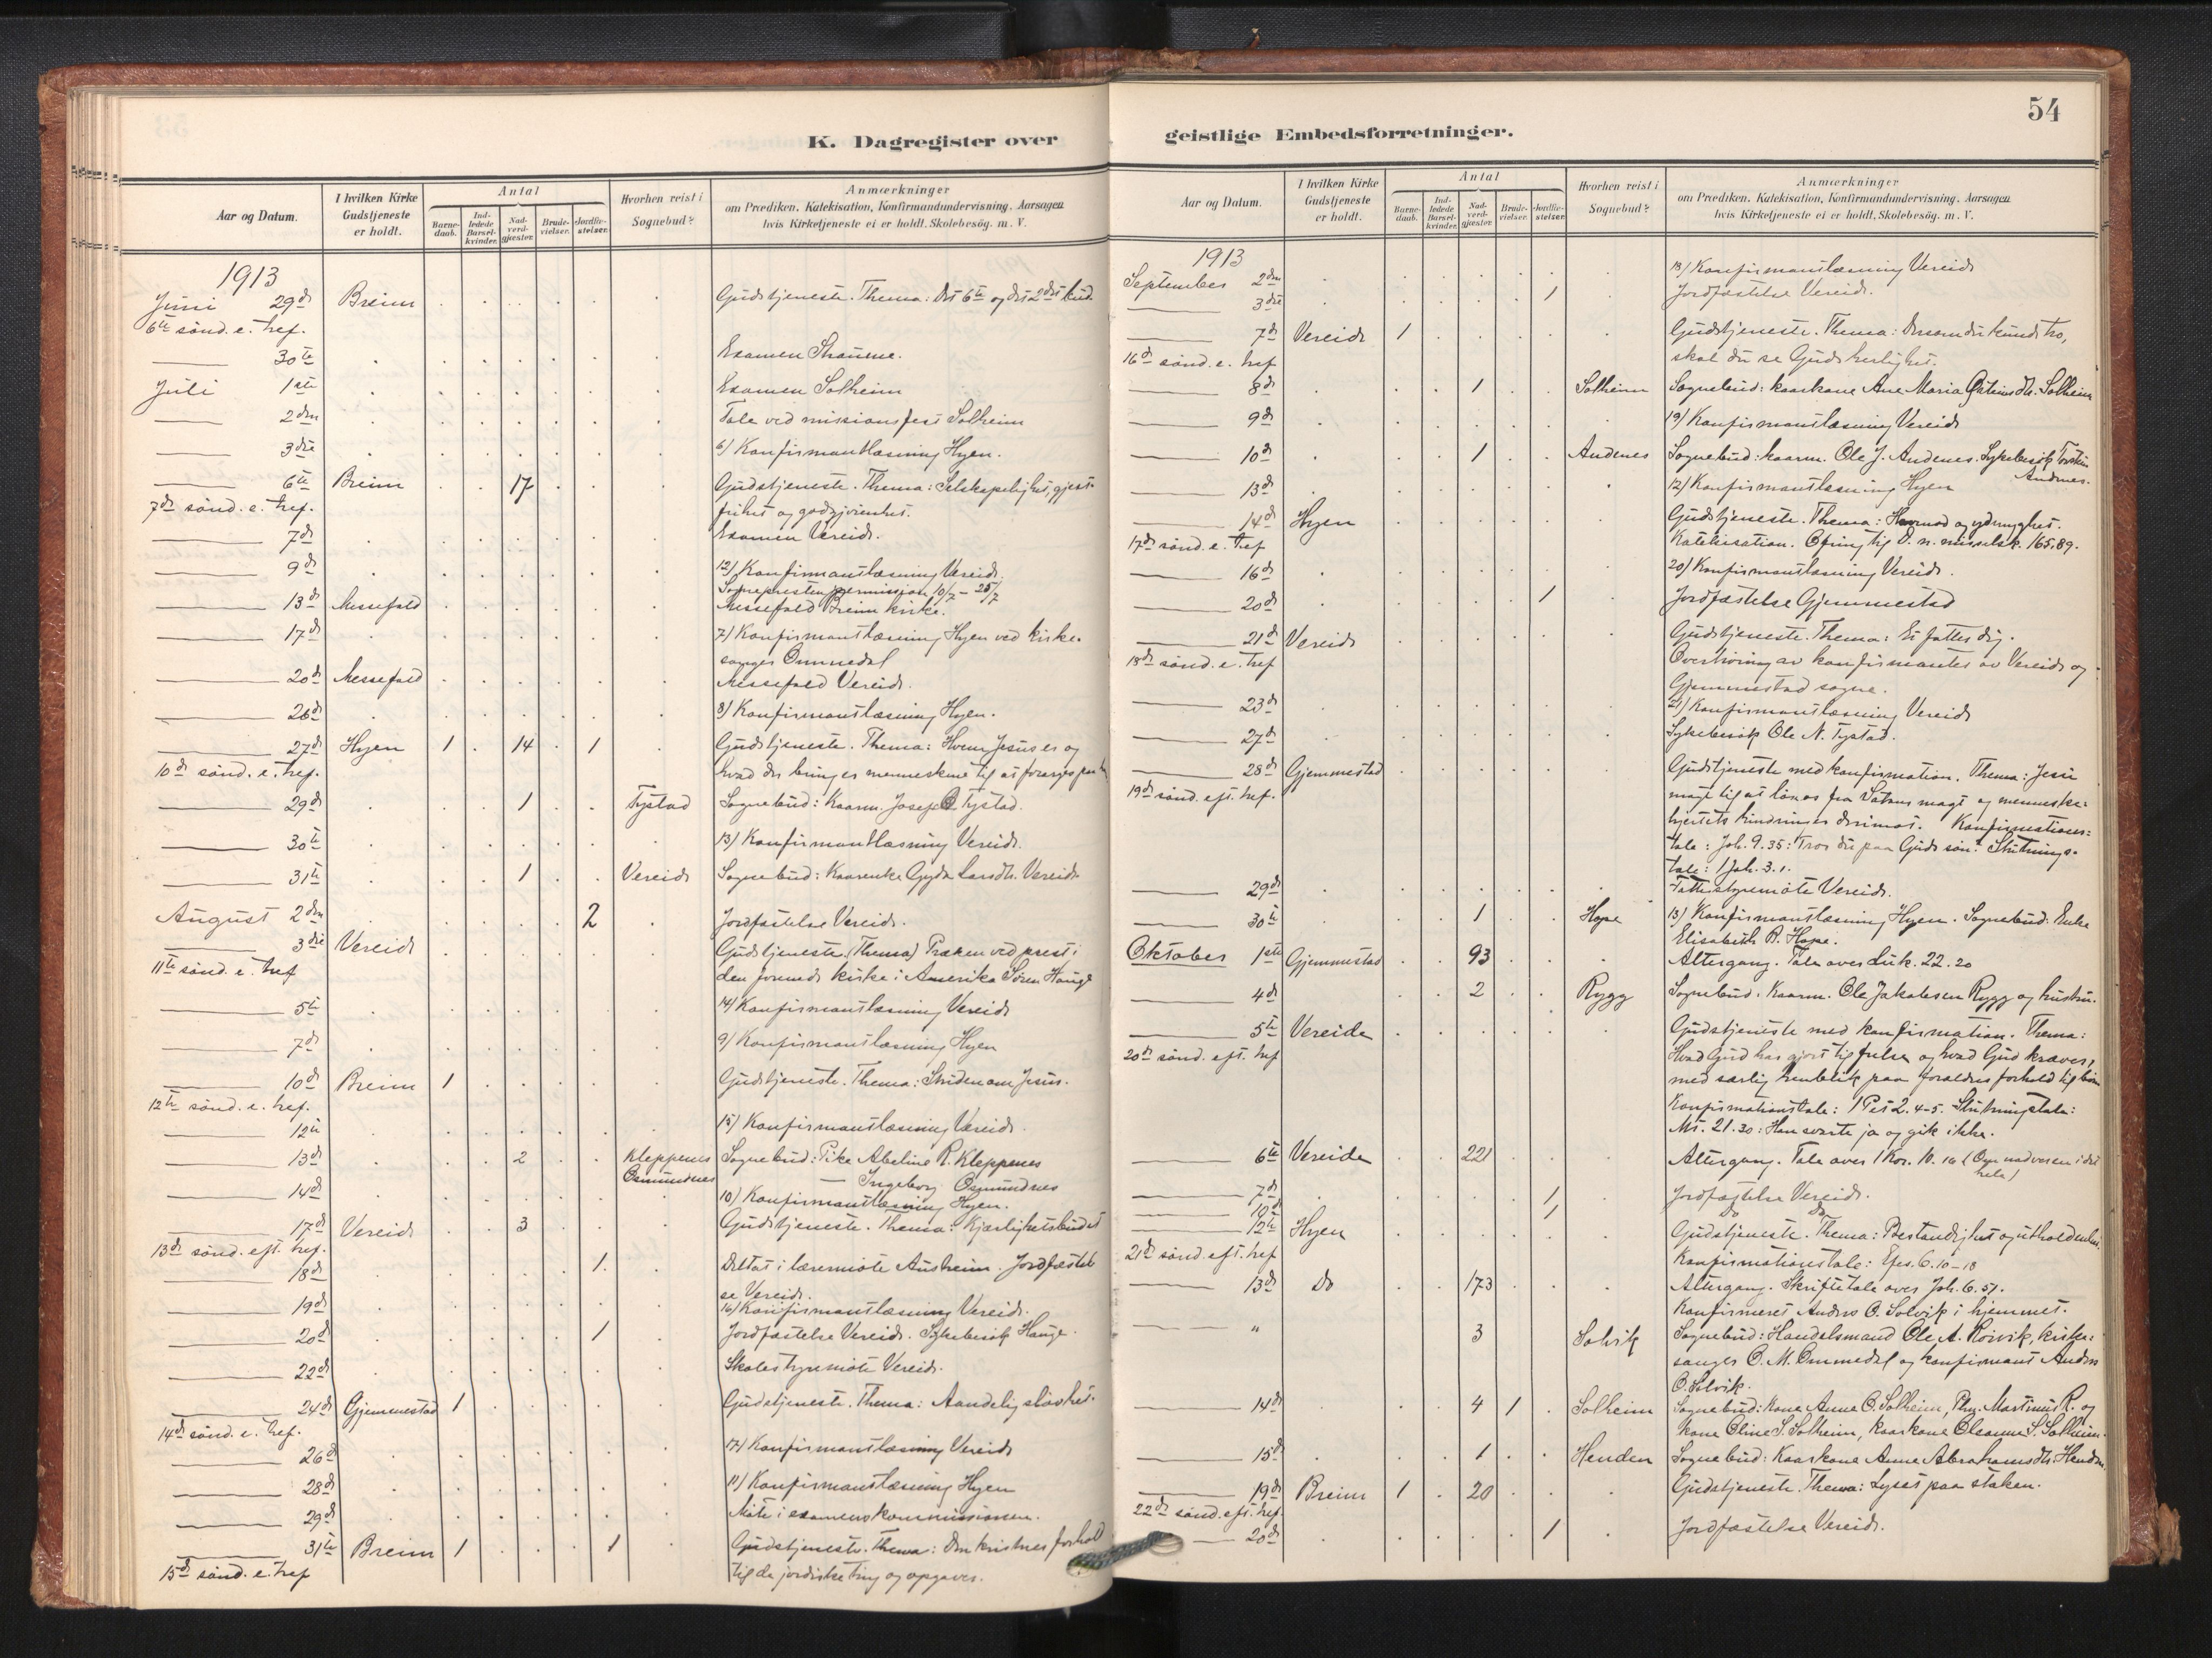 K. Dagregister over
Aar og Datum.
I hvilken Kirke Gudstjeneste er holdt.
Antal
Barne-daab.
Ind-ledede Barsel-kvinder.
Nad-verd-gjæster.
Brude-vielser.
Jordfæ-stelser.
Hvorhen reist i Sognebud?
Anmærkninger
om Prædiken. Katekisation, Konfirmandundervisning. Aarsagen
hvis Kirketjeneste ei er holdt. Skolebesög. m. V.
1913
Juni 29d Breim Gudstjeneste. Thema: Det 6te og det 2det bud.
6te sönd. e. tref.
30te Examen Straume.
Juli 1ste Examen Solheim
2den Tale ved missionsfest Solheim
3die 6) Konfirmantlæsning Hyen.
6te Breim 17 Gudstjeneste. Thema: Selskapelighet, gjest-
7de sönd. e. tref. frihet og godgjörenhet.
7d Examen Vereide.
9d 12) Konfirmantlæsning Vereide.
Sogneprestens permission 10/7 - 25/7
13d Messefald Messefald Breim kirke.
17d 7) Konfirmantlæsning Hyen ved kirke-
sanger Ommedal
20d Messefald Messefald Vereide.
26d 8) Konfirmantlæsning Hyen.
27d Hyen 1 14 1 Gudstjeneste. Thema: Hvem Jesus er og
10d sönd. e. tref. hvad der bringer menneskene til at forarges paa
29d 1 Tystad Sognebud: Kaarm. Josef Tystad.
30te 13) Konfirmantlæsning Vereide.
31te 1 Vereide Sognebud: Kaarenke Gyda Larsdtr. Vereide
August 2den 2 Jordfæstelse Vereide.
3die Vereide Gudstjeneste (Thema) Præken ved prest i
11te sönd. e. tref den forenede kirke i Amerika Sören Hauge
5te 14) Konfirmantlæsning Vereide
7d 9) Konfirmantlæsning Hyen
10d Breim 1 Gudstjeneste. Thema: Striden om Jesus.
12te sönd. e. tref.
12te 15) Konfirmantlæsning Vereide.
13d 2 Kleppenes Sognebud: Pike Abeline R. Kleppenes
Osmundnes — Ingeborg Osmundnes
14d 10) Konfirmantlæsning Hyen.
17d Vereide 3 Gudstjeneste. Thema: Kjærlighetsbudet
13d sönd. eft. tref.
18d 1 Deltat i læremöte Austreim. Jordfæstel
se Vereide.
19d 16) Konfirmantlæsning Vereide.
20d 1 Jordfæstelse Vereide. Sykebesök Hauge.
22d Skolestyremöte Vereide.
24d Gjemmestad 1 Gudstjeneste. Thema: Aandelig slövhet.
14d sönd. e. tref.
26d 17) Konfirmantlæsning Vereide
28d 11) Konfirmantlæsning Hyen
29d Möte i examenskommissionen.
31te Breim 1 1 Gudstjeneste. Thema: Den kristnes forhold
15d sönd. e. tref til de jordiske ting og opgaver.
54
geistlige Embedsforretninger.
Aar og Datum.
I hvilken Kirke Gudstjeneste er holdt.
Antal
Barne-daab.
Ind-ledede Barsel-kvinder.
Nad-verd-gjæster.
Brude-vielser.
Jordfæ-stelser.
Hvorhen reist i Sognebud?
Anmærkninger
om Prædiken. Katekisation, Konfirmandundervisning. Aarsagen
hvis Kirketjeneste ei er holdt. Skolebesög. m. V.
1913
September 2den 18) Konfirmantlæsning Vereide
3die 1 Jordfæstelse Vereide.
7d Vereide 1 Gudstjeneste. Thema: Dersom du kunde tro,
16d sönd. e. tref skal du se Guds herlighet.
8d 1 Solheim Sognebud: kaarkone Ane Maria Solheim
9d 19) Konfirmantlæsning Vereide
10d 1 Andenes Sognebud: kaarm. Ole J. Andenes. Sykebesök
Andenes.
13d 12) Konfirmantlæsning Hyen
14d Hyen Gudstjeneste. Thema: Hovmod og ydmyghet.
17d sönd. e. tref Katekisation. Ofring til D. n. misselsk. 165,89.
16d 20) Konfirmantlæsning Vereide.
20d 1 Jordfæstelse Gjemmestad
21d Vereide Gudstjeneste. Thema: Et fattes dig.
18d sönd. e. tref Overhöring av konfirmanter av Vereide og
Gjemmestad sogne.
23d 21) Konfirmantlæsning Vereide
27d Sykebesök Ole N. Tystad.
28d Gjemmestad Gudstjeneste med konfirmation. Thema: Jesu
19d sönd. eft. tref. magt til at löses fra Satans magt og menneske-
hjertets hindringer derimot. Konfirmations-
tale: Joh. 9.35: Tror du paa Guds sön? Slutnings-
tale: 1 Joh. 3.1.
29d Fattigstyremöte Vereide.
30te 1 Hope 13) Konfirmantlæsning Hyen. Sognebud: Enke
Elisabeth R. Hope.
Oktober 1ste Gjemmestad 93 Altergang. Tale over Luk. 22.20
4d 2 Rygg Sognebud: Kaarm. Ole Jakobsen Rygg og hustru.
5te Vereide Gudstjeneste med konfirmation. Thema:
20d sönd. eft. tref Hvad Gud har gjort til frelse og hvad Gud kræver,
med særlig henblik paa forældres forhold til barn
Konfirmationstale: 1 Pet 2.4-5. Slutningstale:
Mt. 21.30: Han svarte ja og gik ikke.
6te Vereide 221 Altergang. Tale over 1 Kor. 10.16 (Om nadveren i det
hele)
7d 1 Jordfæstelse Vereide.
1 Do Do
12te Hyen Gudstjeneste. Thema: Bestandighet og utholdenhet.
21d sönd. eft. tref Konfirmationstale: Efes. 6.10-18
13d Do 173 Altergang. Skriftetale over Joh. 6.51.
Konfirmeret Anders O. Solvik i hjemmet.
" 3 Solvik Sognebud: Handelsmand Ole A. Roivik, kirke-
sanger O. M. Ommedal og konfirmant Anders
O. Solvik.
14d 4 1 Solheim Sognebud: Kone Anne O. Solheim, Martinus R. og
kone Oline S. Solheim, kaarkone Olsanne S. Solheim.
15d 1 Henden Sognebud: Kaarkone Anne Abrahamsdtr. Henden.
19d Breim 1 20 Gudstjeneste. Thema: Lyset paa staken.
22d sönd. eft. tref.
20d 1 Jordfæstelse Vereide.